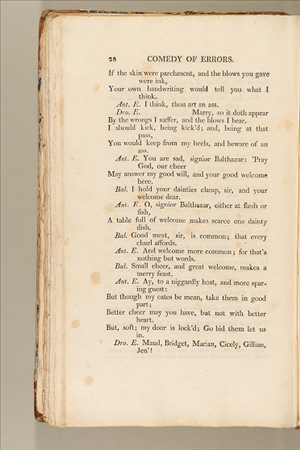 28 COMEDY OF ERRORS.
If the skin were parchment, and the blows you gave
were ink,
Your own handwriting would tell you what I
think.
Ant. E. I think, thou art an ass.
Dro. E. Marry, so it doth appear
By the wrongs I suffer, and the blows I bear.
I should kick, being kick'd; and, being at that
pass,
You would keep from my heels, and beware of an
ass.
Ant. E. You are sad, signior Balthazar: 'Pray
God, our cheer
May answer my good will, and your good welcome
here.
Bal. I hold your dainties cheap, sir, and your
welcome dear.
Ant. E. O, signior Balthazar, either at flesh or
fish,
A table full of welcome makes scarce one dainty
dish.
Bal. Good meat, sir, is common; that every
churl affords.
Ant. E. And welcome more common; for that's
nothing but words.
Bal. Small cheer, and great welcome, makes a
merry feast.
Ant. E. Ay, to a niggardly host, and more spar-
ing guest:
But though my cates be mean, take them in good
part;
Better cheer may you have, but not with better
heart.
But, soft; my door is lock'd; Go bid them let us
in.
Dro. E. Maud, Bridget, Marian, Cicely, Gillian,
Jen'!